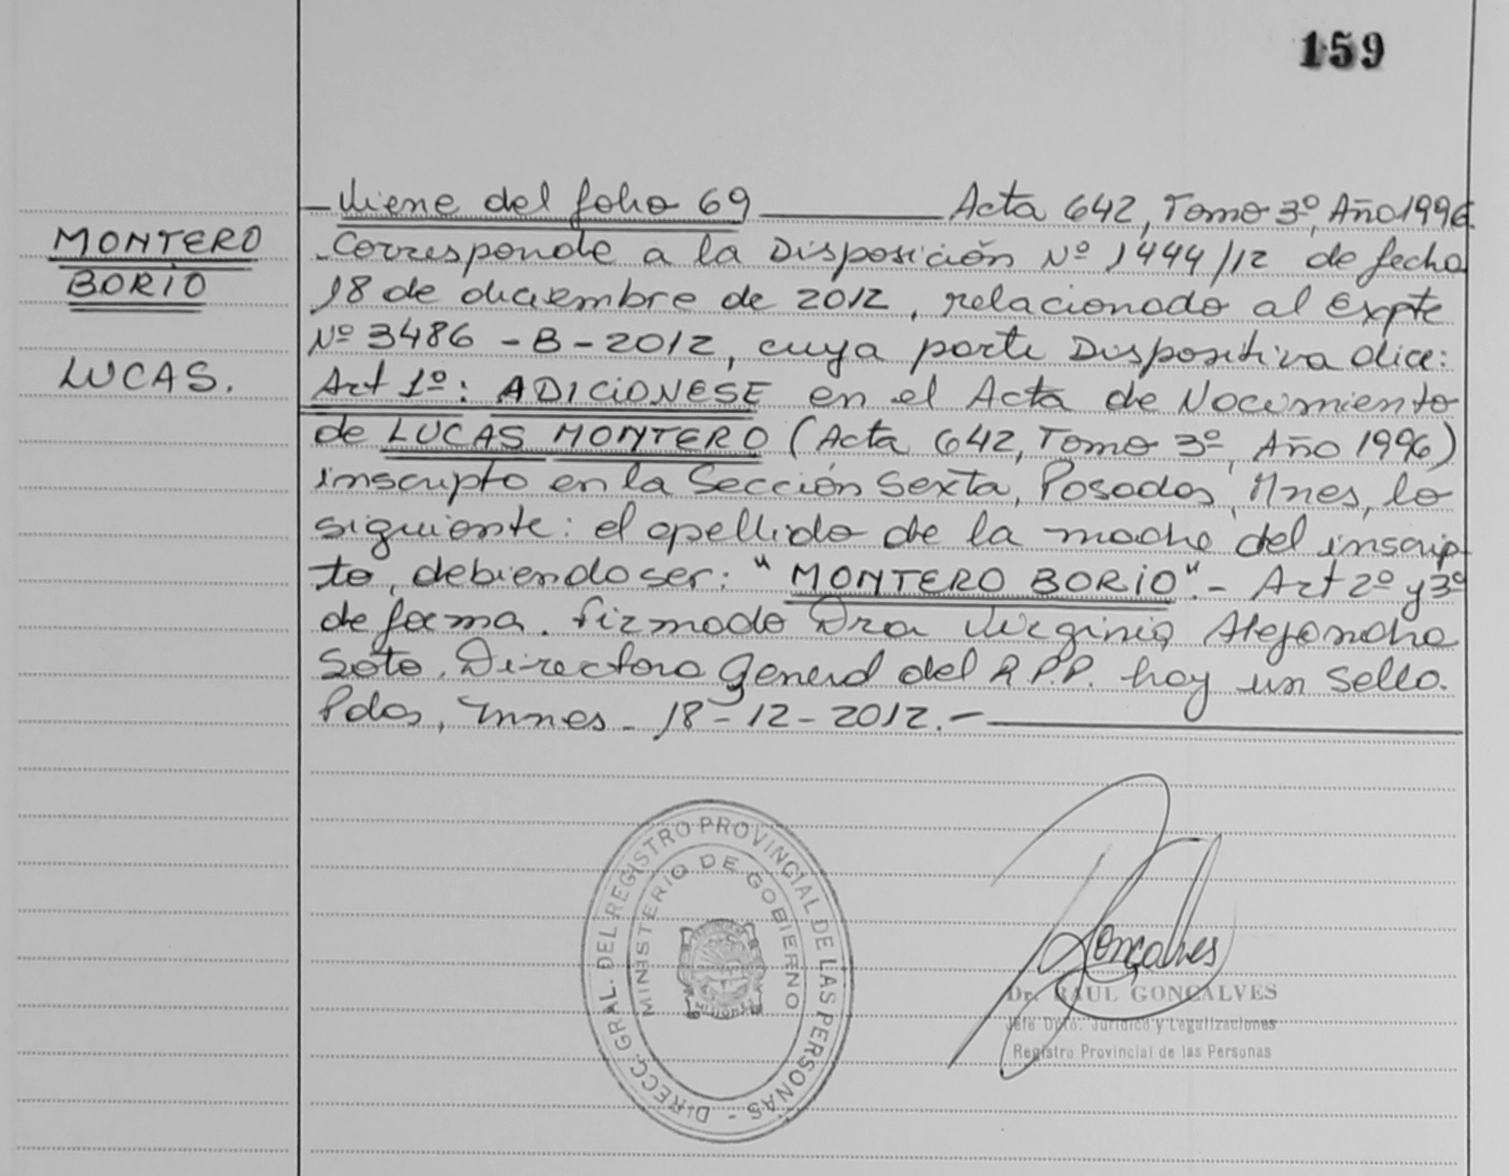 159
Viene del folio 69 Acta 642, Tomo 3º, Año 1996
MONTERO
BORIO
LUCAS.
Corresponde a la Disposición Nº 1444/12 de fecha
18 de diciembre de 2012, relacionado al Expte
Nº 3486 - B - 2012, cuya parte Dispositiva dice:
Art 1º: ADICIONESE en el Acta de Nacimiento
de LUCAS MONTERO (Acta 642, Tomo 3º, Año 1996)
inscripto en la Sección Sexta, Posadas, Mnes, lo
siguiente: el apellido de la madre del inscrip
to, debiendo ser: "MONTERO BORIO".- Art 2º y 3º
de forma. Firmado Dra Virginia Alejandra
Soto. Directora General del R.P.P. hay un sello.
Pdas, Mnes - 18-12-2012.-
DIRECC. GRAL. DEL REGISTRO PROVINCIAL DE LAS PERSONAS -
MINISTERIO DE GOBIERNO
MISIONES
Gonçalves
Dr. RAUL GONCALVES
Jefe Dpto. Jurídico y Legalizaciones
Registro Provincial de las Personas